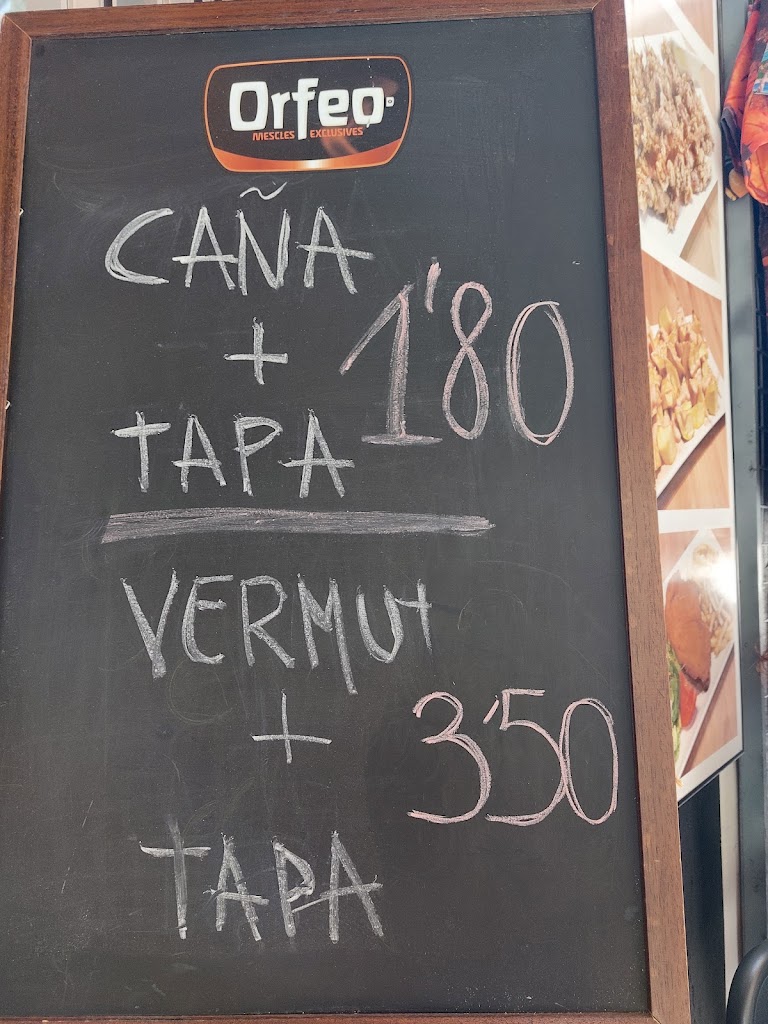 Orfeo
MESCLES EXCLUSIVES
CAÑA
+ 1'80
TAPA
VERMUt
+ 3'50
TAPA